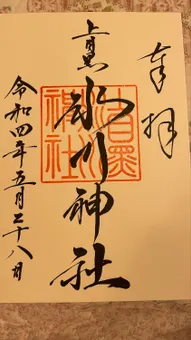 奉拝
上目黒
氷川神社
令和四年五月二十八日